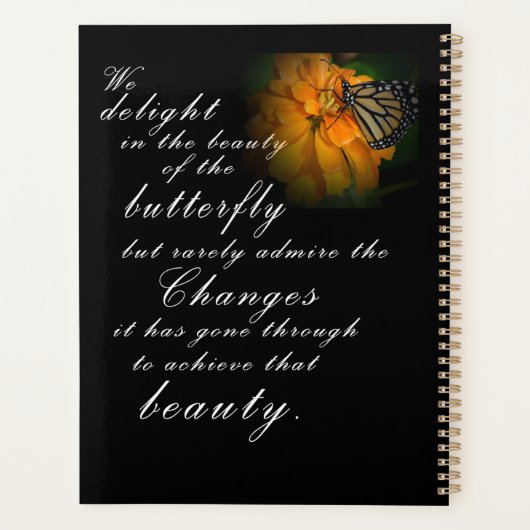 We
delight
in the beauty
of the
butterfly
but rarely admire the
Changes
it has gone through
to achieve that
beauty.